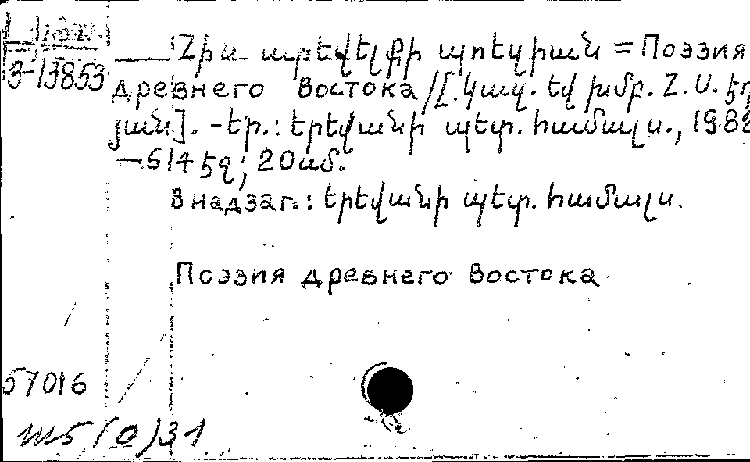 3-13853
Հին արևելքի պոեզիան = Поэзия
древнего Востока / [. կազ. եվ խմբ. Հ. Ս. եղ
յան]. - Եր.: Երեվանի պետ. համալս., 1982
– 514 էջ; 20սմ.
В надзаг.: Երեվանի պետ. համալս.
Поэзия древнего Востока
57016
т5(0)31